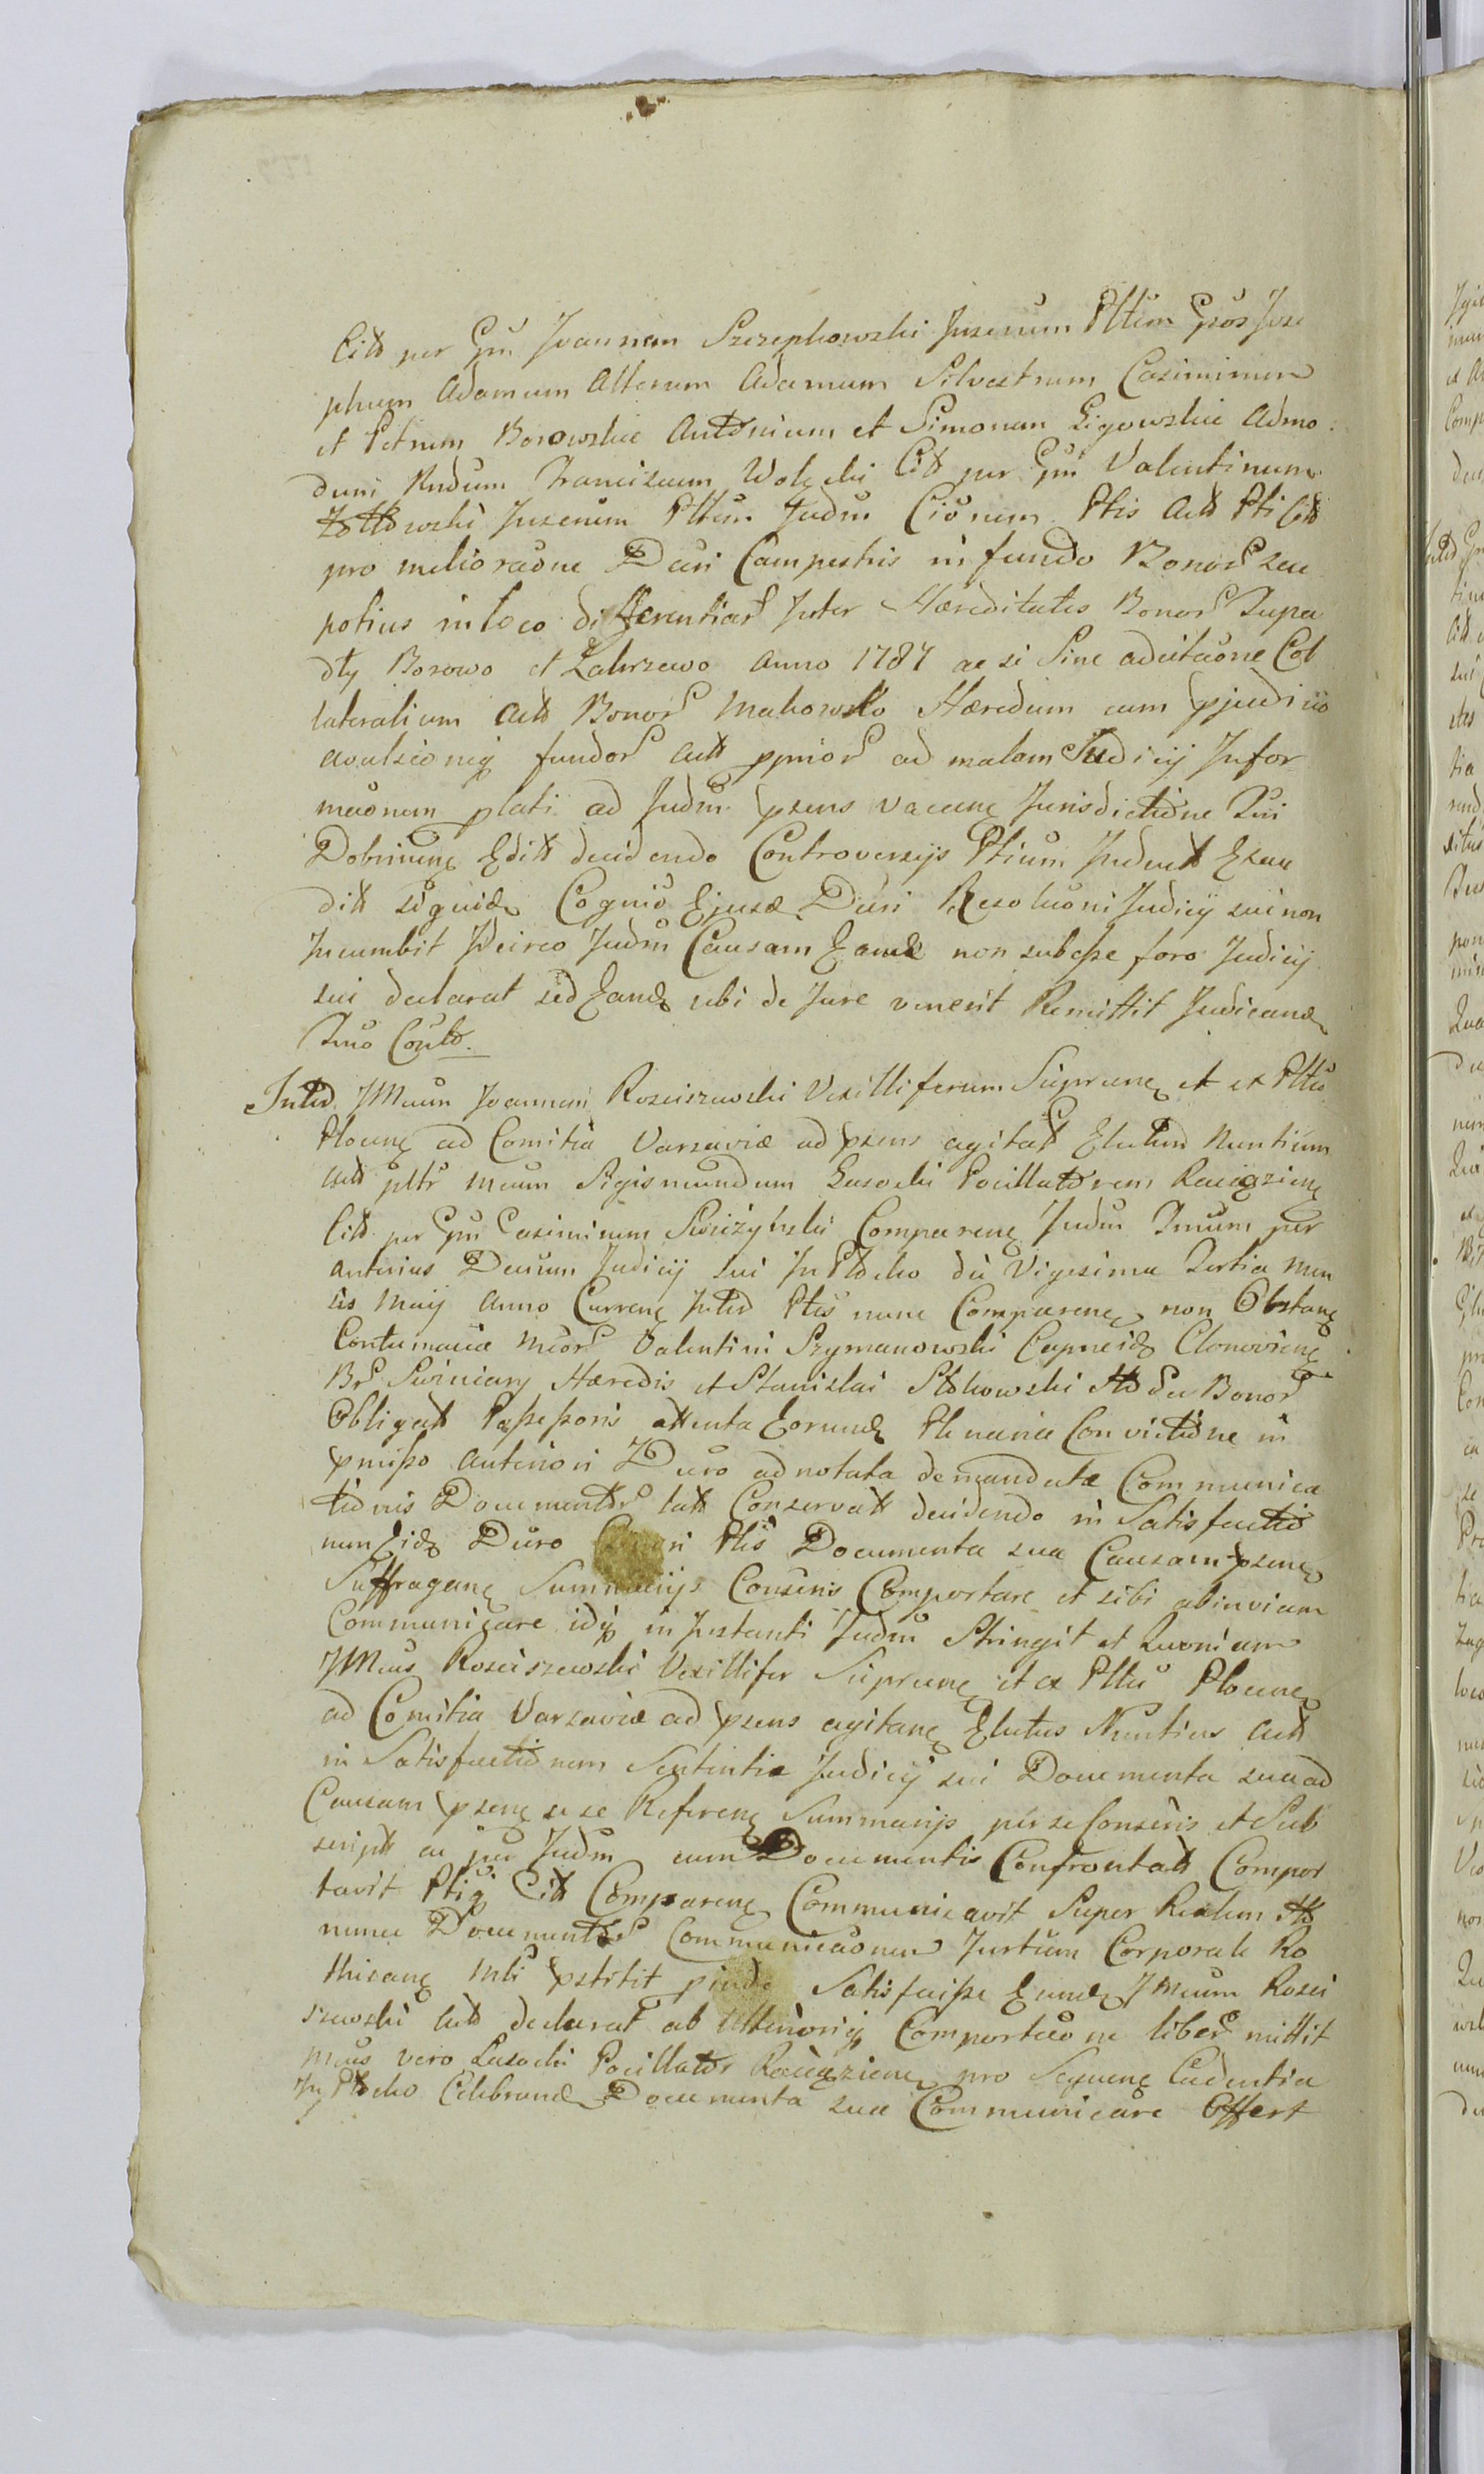 Citt per Gm Joannem Szczepkowski Juzenum Pltum Gros Jose
phum Adamum Alterum Adamum Silvestrum Casimirum
et Petrum Borowskie Antonium et Simonem Ligowskie Admo
dum Rndum Franciscum Wolski Citt per Gm Valentinum
Juzenum Pltum Judm Cionem Ptis Actt Pti Citt
pro melioraone Decri Campestris in fundo Bonor seu
potius in loco differentiar Inter Hæreditates Bonor Rupa
dly Borowo et Zakrzewo Anno 1787 ac si Sine adcitaone Col
lateralium Actt Bonor Makowsko Hæredum cum pjudicio
avulsionisq fundor Actt ppriorum ad malam Judicij Infor
maonem plati ad Judm psens vacanę Jurisdictione Tri
Dobrinenę Editt decidendo Controversijs Ptium Inductt Exau
ditt siquidę Cognio Ejusdę Decri Resoluoni Judicij sui non
Incumbit Idcirco Judm Causam Eandę non subesse foro Judicij
sui declarat sed Eandę ubi de Jure venerit Remittit Judicandę
Tmo Contto.
Inter JMcum Joannem Rosciszewski Vexilliferum Sieprcenę et ex Pttu
Plocenę ad Comitia Varsaviæ ad psens agitatt Electum Nuntium
Actt pltr Mcum Sigismundum Lasocki Pocillatorem Raciązienę
Citt per Gm Casimirum Swiżyński Comparenę Judm Tmum per
anterius Decrum Judicij sui In Ptocko die Vigesima Tertia Men
sis Maij Anno Currenę Inter Ptes nunc Comparenę non Obstanę
Contumacia Mcor Valentini Szymanowski Capneidę Clonovienę
Br Swiniary Hæredis et Stanislai Ptokowski Bonor
Obligatt Possessoris attenta Eorundę Plenaria Convictione in
pmisso Anteriori Decro adnotata demandatæ Communica
tionis Documentor latt Conservatt decidendo in Satisfactio
nem Eidę Decro Ptes Documenta sua Causam psenę
Suffraganę Summarijs Conseris Comportare et sibi abinviam
Communicare idq in Instanti Judm Stringit et Quoniam
JMcus Rosciszewski Vexillifer Sieprcenę et ex Pttu Plocenę
ad Comitia Varsaviæ ad psens agitanę Electus Nuntius Actt
in Satisfactionem Sententiæ Judicij sui Documenta sua ad
Causam psenę se se Referenę Summarijs per se Conseris et Sub
scriptt ac per Judm cum Documentis Confrontatt Compor
tavit Ptiq Citt Comparenę Communicavit Super Realem
minu Documentor Communicaonem Juxtum Corporale Ro
thisanę Mli pstitit pinde Satisfecisse Eundę JMcum Rosci
szewski Actt declarat ab Ulterioriq Comportaone liber mittit
Mcus vero Lasocki Pocillator Raciązienę pro Sequenę Cadentia
In Ptocko Celebrandę Documenta sua Communicare Offert